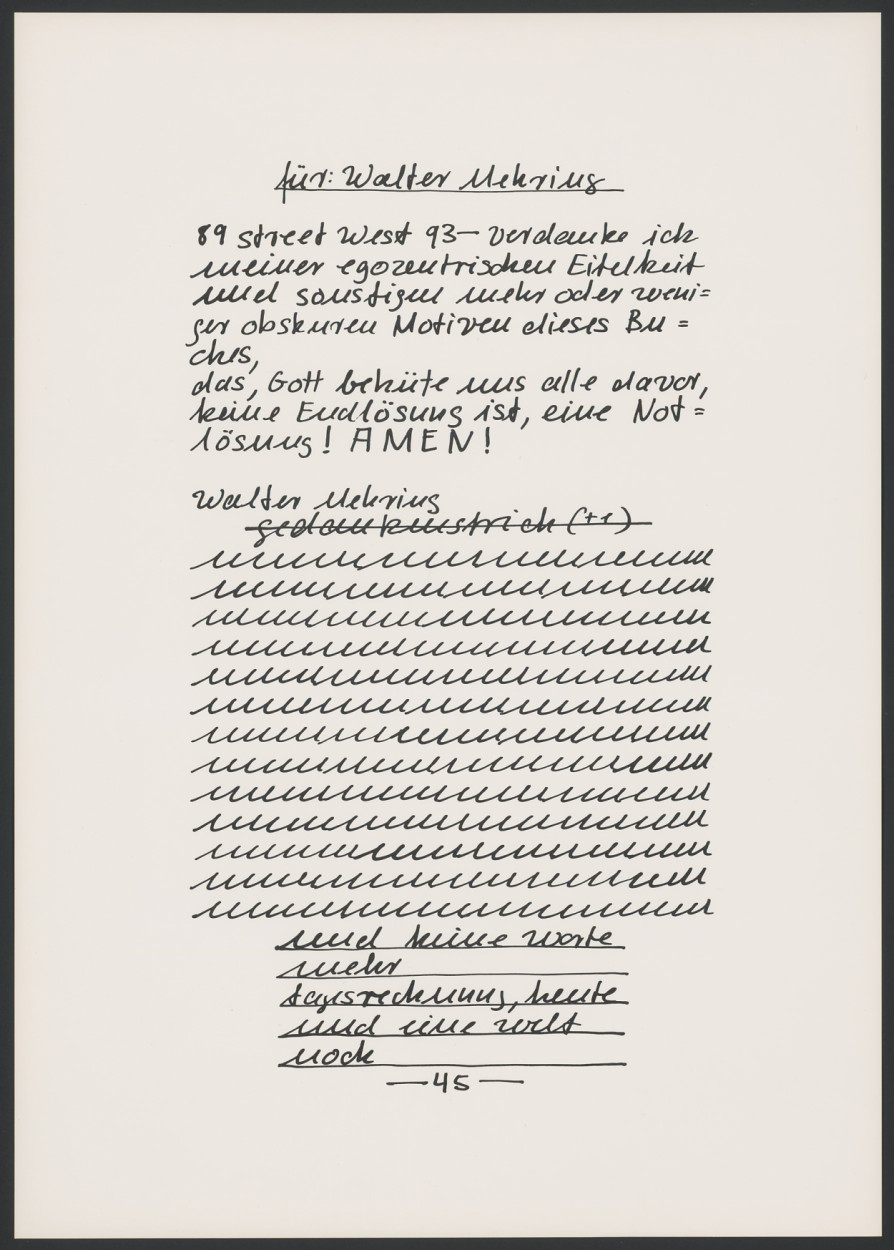 für: Walter Mehring
89 street West 93— verdanke ich
meiner egozentrischen Eitelkeit
und sonstigen mehr oder weni=
ger obskuren Motiven dieses Bu=
ches,
das, Gott behüte uns alle davor,
keine Endlösung ist, eine Not=
lösung! AMEN!
Walter Mehring
gedankenstrich (++)
und keine worte
mehr
tagsrechnung, heute
und eine welt
noch
—45—